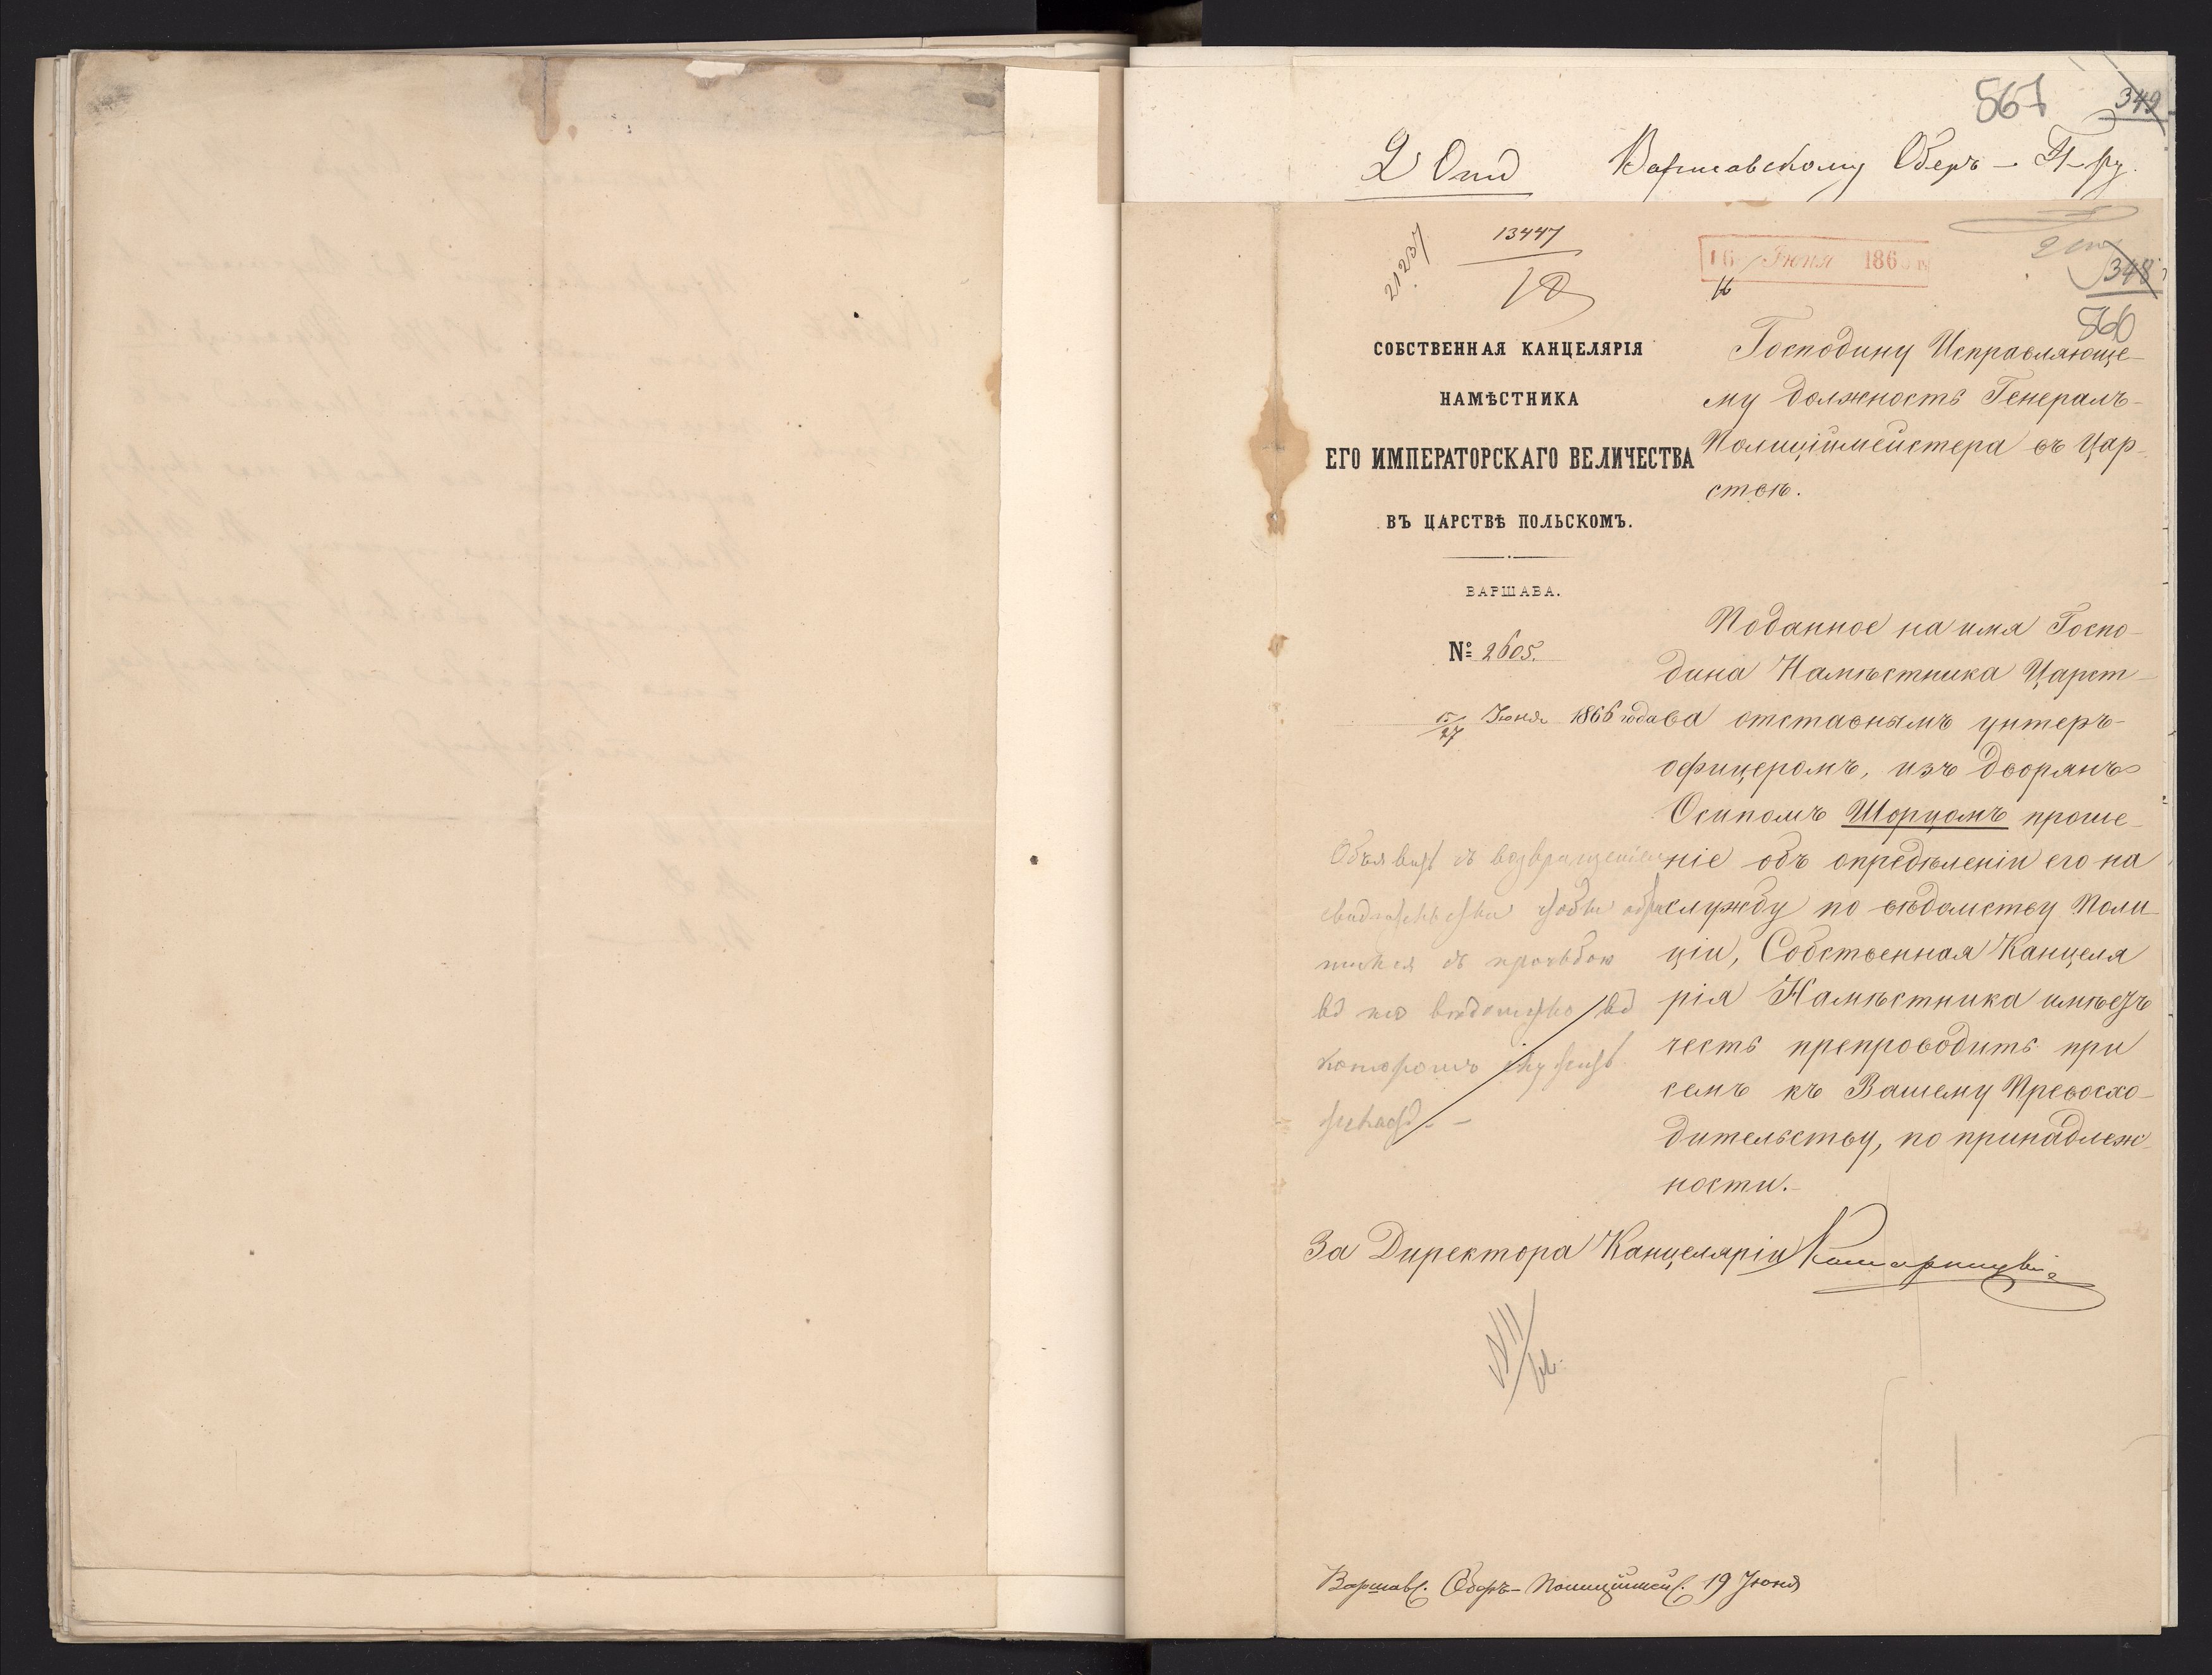 561 349
2 Отд Варшавскому Оберъ-П-ру.
21237
13447
16 Июня 186
348
560
СОБСТВЕННАЯ КАНЦЕЛЯРІЯ
НАМѢСТНИКА
ЕГО ИМПЕРАТОРСКАГО ВЕЛИЧЕСТВА
ВЪ ЦАРСТВѢ ПОЛЬСКОМЪ.
ВАРШАВА.
№ 2605.
15/27 Июня 1866 года
Господину Исправляюще-
му должность Генералъ-
Полиціймейстера въ Цар-
ствѣ.
Поданное на имя Госпо-
дина Намѣстника Царст-
ва отставнымъ унтеръ-
офицеромъ, изъ дворянъ
Осипомъ Шорцомъ проше-
ніе объ опредѣленіи его на
службу по вѣдомству Поли-
ціи, Собственная Канцеля
рія Намѣстника имѣетъ
честь препроводить при
семъ къ Вашему Превосхо-
дительству, по принадлеж-
ности.-
Объявить съ возвращеніем
свидѣтельства чтобы обра
тился съ просьбою
въ то вѣдомство въ
которомъ служитъ
За Директора Канцеляріи
Варшавс. Оберъ-Полиціймейс. 19 Июня